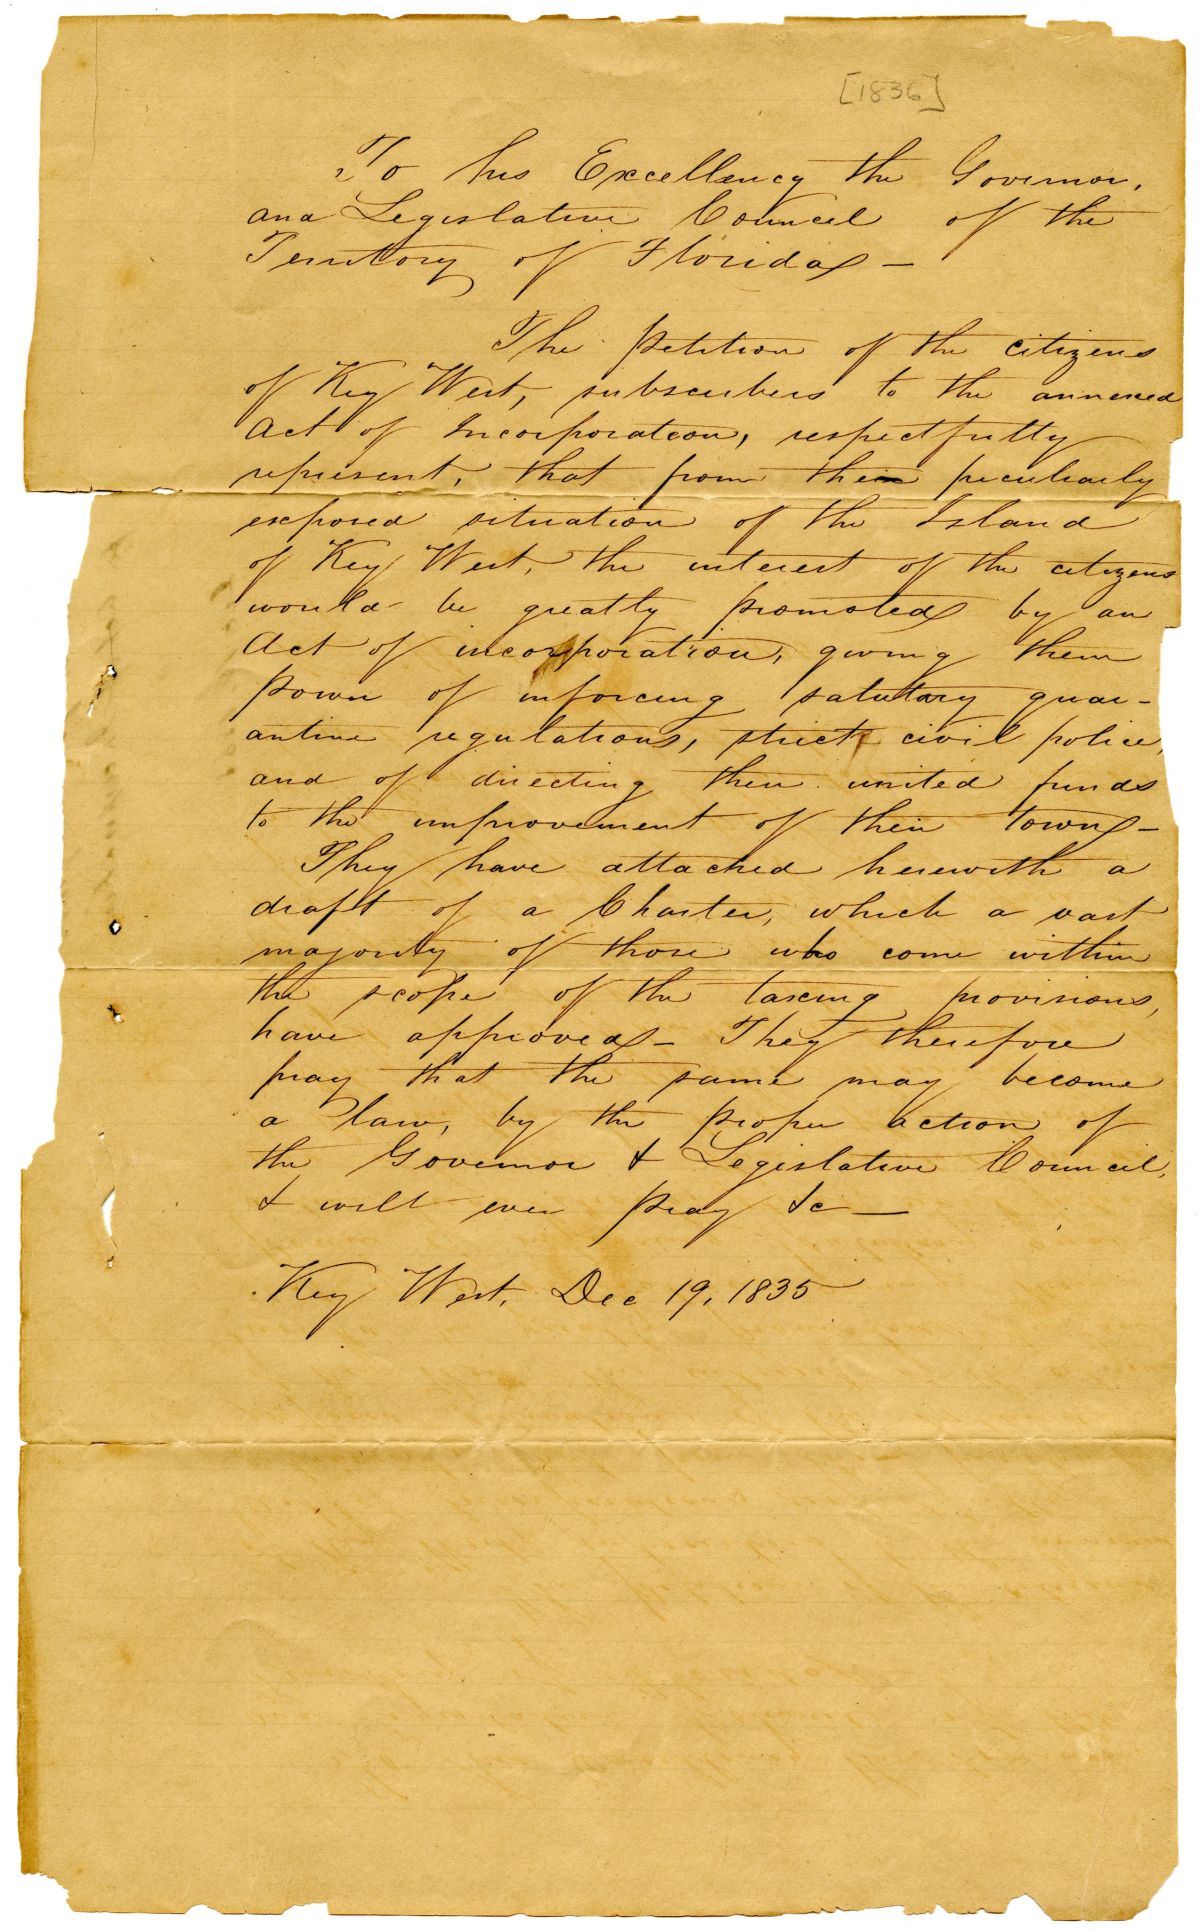 [1836]
To his Excellency the Governor,
and Legislative Council of the
Territory of Florida –
The petition of the citizens
of Key West, subscribers to the annexed
Act of Incorporation, respectfully
represent, that from the peculiarly
exposed situation of the Island
of Key West, the interest of the citizens
would be greatly promoted by an
Act of incorporation, giving them
power of inforcing salutary quar-
antine regulations, strict civil police,
and of directing their united funds
to the improvement of their town –
They have attached herewith a
draft of a Charter, which a vast
majority of those who come within
the scope of the taxing provisions,
have approved – They therefore
pray that the same may become
a law, by the proper action of
the Governor & Legislative Council,
& will ever pray &c –
Key West, Dec 19, 1835